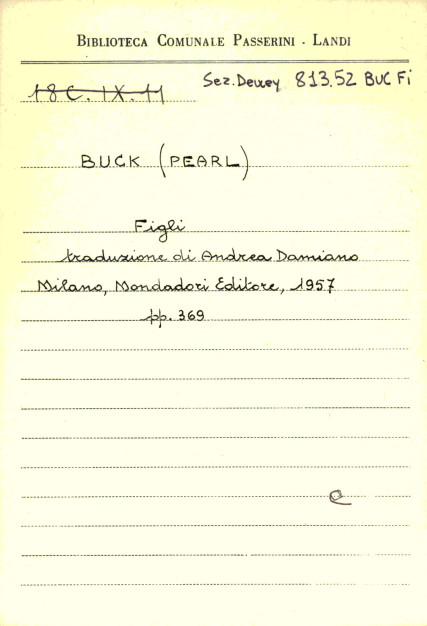 BIBLIOTECA COMUNALE PASSERINI - LANDI
18 C. IX. 11
Sez. Dewey 813.52 BUC Fi
BUCK (PEARL)
Figli
traduzione di Andrea Damiano
Milano, Mondadori Editore, 1957
pp. 369
e